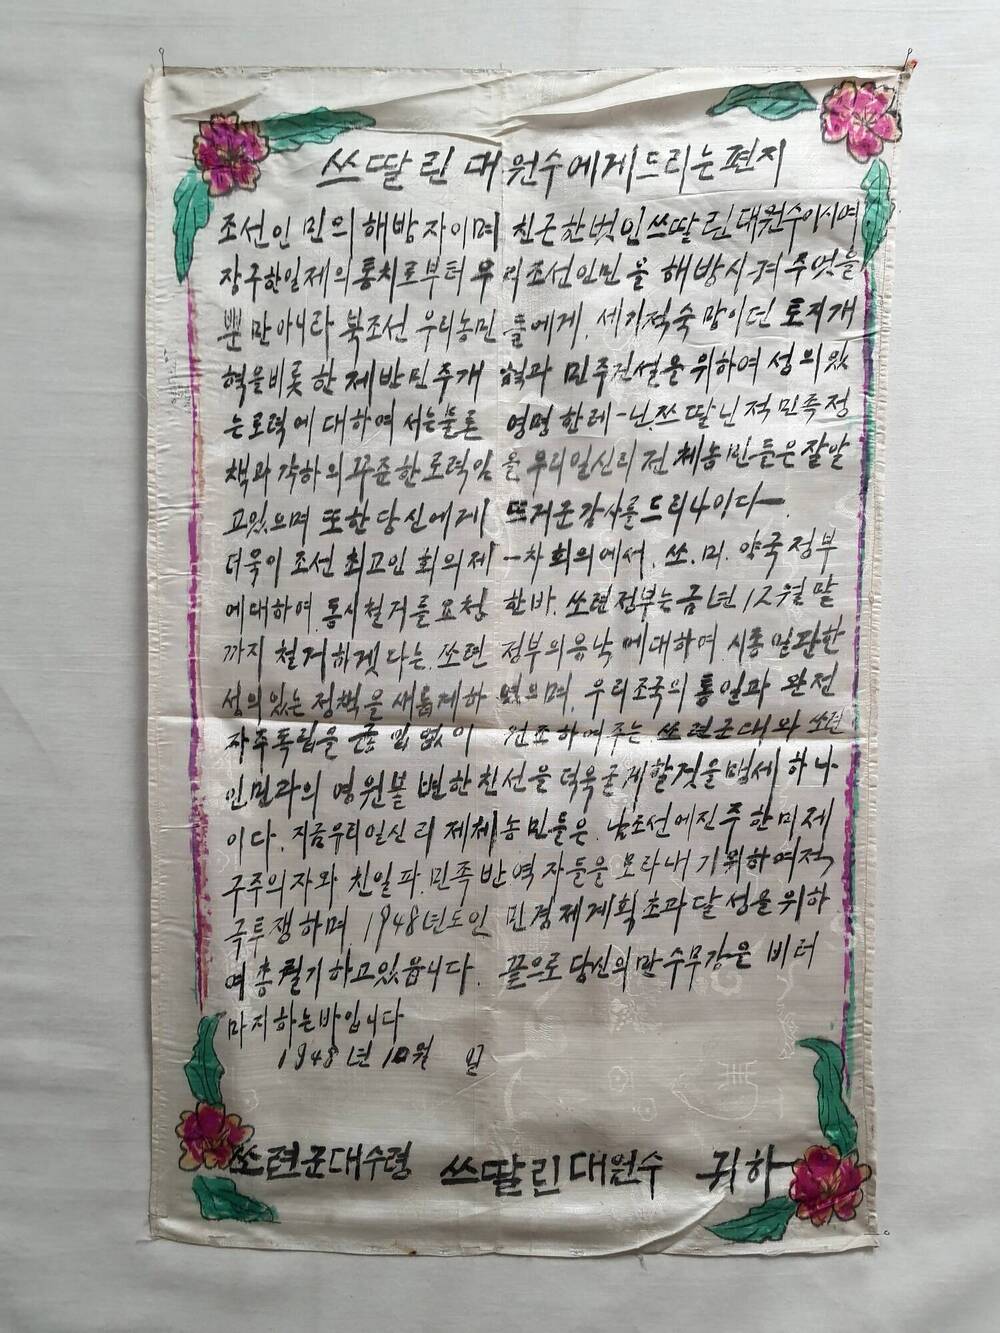 쓰딸린 대원수에게 드리는 편지
조선인민의 해방자이며 친근한 벗인 쓰딸린 대원수이시여
장구한 일제의 통치로부터 우리 조선인민을 해방시켜 주엇을
뿐만아니라 북조선 우리 농민들에게. 세기적 숙망이던 토지개
혁을 비롯한 제반 민주개혁과 민주건설을 위하여 성의있
는 로력에 대하여서는 물론 영명한 레-닌, 쓰딸닌적 민족정
책과 각하의 꾸준한 로력임을 우리 일신리 전체 농민들은 잘 알
고있으며 또한 당신에게 뜨거운 감사를 드리나이다ㅡ.
더욱이 조선 최고인회의 제一차 회의에서. 쏘. 미. 약국 정부
에 대하여. 동시철거를 요청한바. 쏘련 정부는 금년 12월 말
까지 철거하겟다는. 쏘련 정부의 응낙에 대하여. 시종일관한
성의있는 정책을 우리 조국의 통일과 완전
자주독립을 끊임없이 원조하여주는. 쏘련군대와 쏘련
인민과의 영원불변한 친선을 더욱 굳게할것을 맹세하나
이다. 지금 우리 일신리 제체 농민들은. 남조선에 진주한 미제
국주의자와 친일파. 민족반역자들을 모라내기 위하여 적
극투쟁하며. 1948년도 인민경제계획 초과달성을 위하
여 총궐기하고있읍니다. 끝으로 당신의 만수무강은 비러
마지하는바입니다
1948년 10월 일
쏘련군대수령 쓰딸린 대원수 귀하